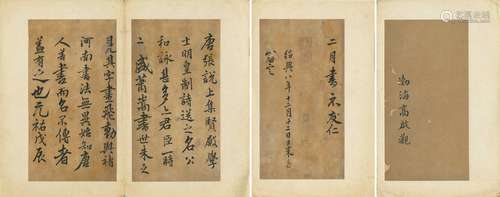 唐張說上集賢殿學
士明皇制詩送之名公
和詠甚多君臣一時
盛蕭嵩書世未之
見其字畫飛動與褚
河南書法無異始知唐
人善書而名不傳者
蓋有之也元祐戊辰
二月書米友仁
紹興八年
渤海高啟觀